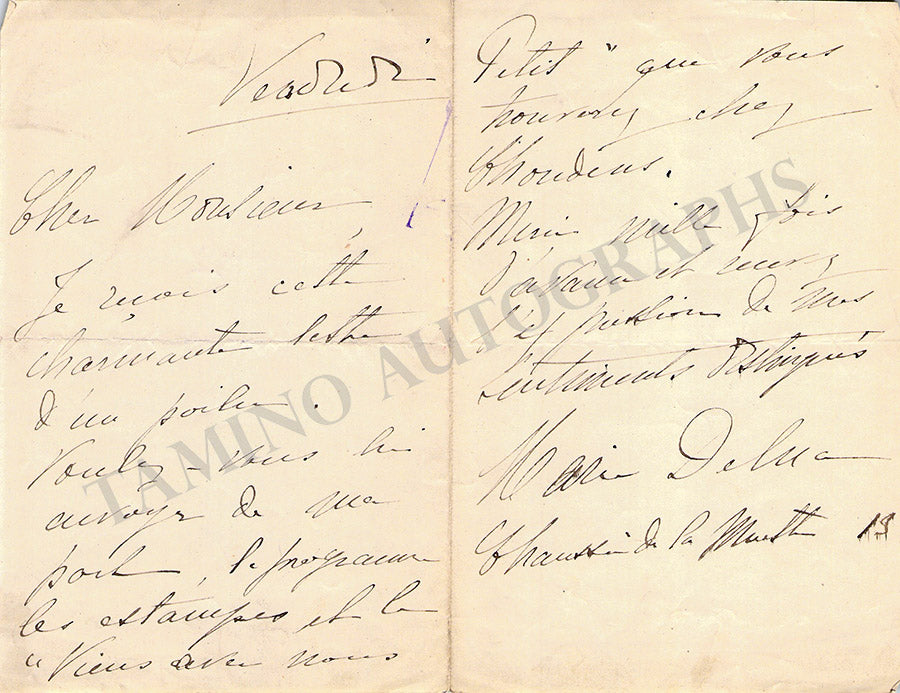 Vendredi
Cher Monsieur,
Je reçois cette
charmante lettre
d'un poilu.
Voulez-vous lui
envoyer de ma
part, le programme
les estampes et le
"Viens avec nous
Petit" que vous
trouverez chez
Choudens.
Merci mille fois
d'avance et recevez
l'expression de mes
sentiments distingués
Marie Delna
Chaussée de la Muette
TAMINO AUTOGRAPHS